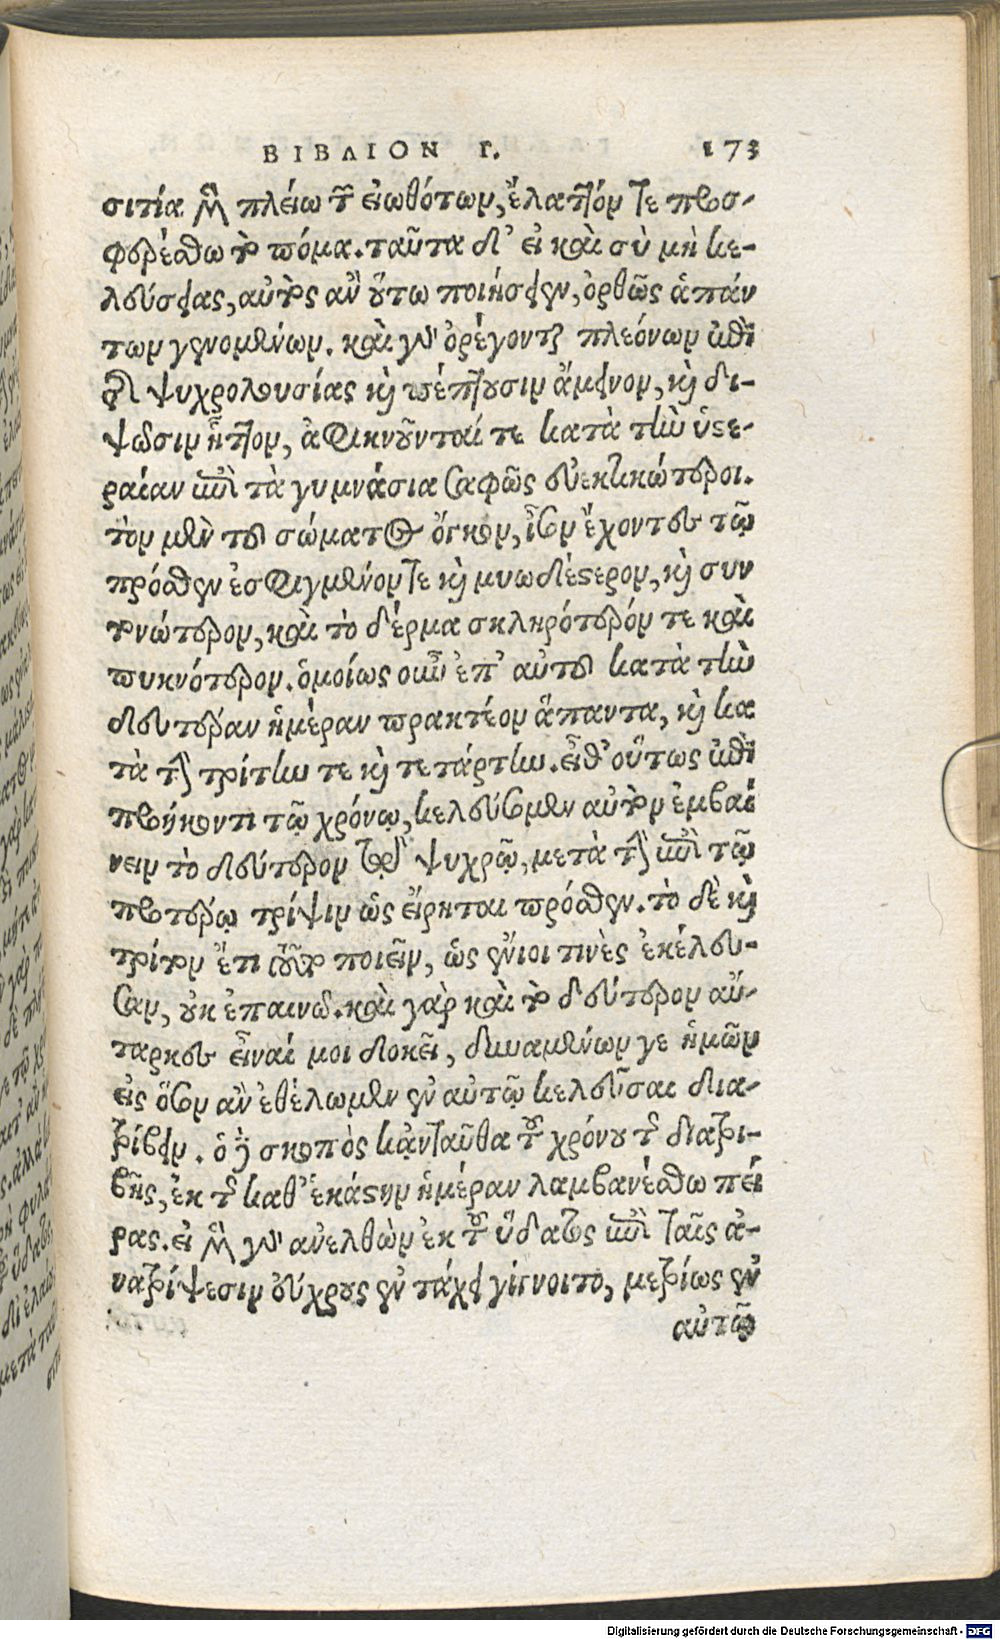 ΒΙΒΛΙΟΝ Γ. 173
σιτία μὲν πλείω τῶν εἰωθότων, ἔλαττόν τε προσ-
φερέσθω τὸ πόμα. ταῦτα δ' εἰ καὶ σὺ μὴ κε-
λεύσειας, αὐτὸς ἂν οὕτω ποιήσειεν, ὀρθῶς ἁπάν
των γινομένων. καὶ γὰρ ὀρέγονται πλεόνων ἐπὶ
ταῖς ψυχρολουσίας καὶ πέπτουσιν ἄμεινον, καὶ δι-
ψῶσιν ἧττον, ἀφικνοῦνταί τε κατὰ τὴν ὑστε-
ραίαν ἐπὶ τὰ γυμνάσια σαφῶς εὐεκτικώτεροι.
τὸν μὲν τοῦ σώματος ὄγκον, ἴσον ἔχοντες τῷ
πρόσθεν ἐσφιγμένον τε καὶ μυωδέστερον, καὶ συν
τονώτερον, καὶ τὸ δέρμα σκληρότερόν τε καὶ
πυκνότερον. ὁμοίως οὖν ἐπ' αὐτοῦ κατὰ τὴν
δευτέραν ἡμέραν πρακτέον ἅπαντα, καὶ κα
τὰ τὴν τρίτην τε καὶ τετάρτην. εἶθ' οὕτως ἐπὶ
προήκοντι τῷ χρόνῳ, κελεύσομεν αὐτὸν ἐμβαί
νειν τὸ δεύτερον τῷ ψυχρῷ, μετὰ τὴν ἐπὶ τῷ
προτέρῳ τρίψιν ὡς εἴρηται πρόσθεν. τὸ δὲ καὶ
τρίτον ἔτι τοῦτο ποιεῖν, ὡς ἔνιοί τινες ἐκέλευ-
σαν, οὐκ ἐπαινῶ. καὶ γὰρ καὶ τὸ δεύτερον αὔ-
ταρκες εἶναί μοι δοκεῖ, δυναμένων γε ἡμῶν
εἰς ὅσον ἂν ἐθέλωμεν ἐν αὐτῷ κελεῦσαι δια-
τρίβειν. ὁ δὲ σκοπὸς κἀνταῦθα τοῦ χρόνου τῆς διατρι-
βῆς, ἐκ τῆς καθ' ἑκάστην ἡμέραν λαμβανέσθω πεί
ρας. εἰ μὲν γὰρ ἀνελθὼν ἐκ τοῦ ὕδατος ἐπὶ ταῖς ἀ-
νατρίψεσιν εὔχρους ἐν τάχει γίγνοιτο, μετρίως ἐν
αὐτῷ
Digitalisierung gefördert durch die Deutsche Forschungsgemeinschaft - DFG